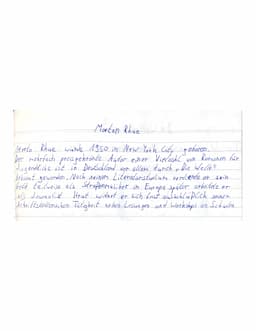 Morton Rhue
Morton Rhue wurde 1950 in New York City geboren.
Der mehrfach preisgekrönte Autor einer Vielzahl von Romanen für
Jugendliche ist in Deutschland vor allem durch „Die Welle“
bekannt geworden. Nach seinem Literaturstudium verdiente er sein
Geld teilweise als Straßenmusiker in Europa, später arbeitete er
als Journalist. Heut widmet er sich fast ausschließlich seiner
schriftstellerischen Tätigkeit neben Lesungen und Workshops an Schulen.